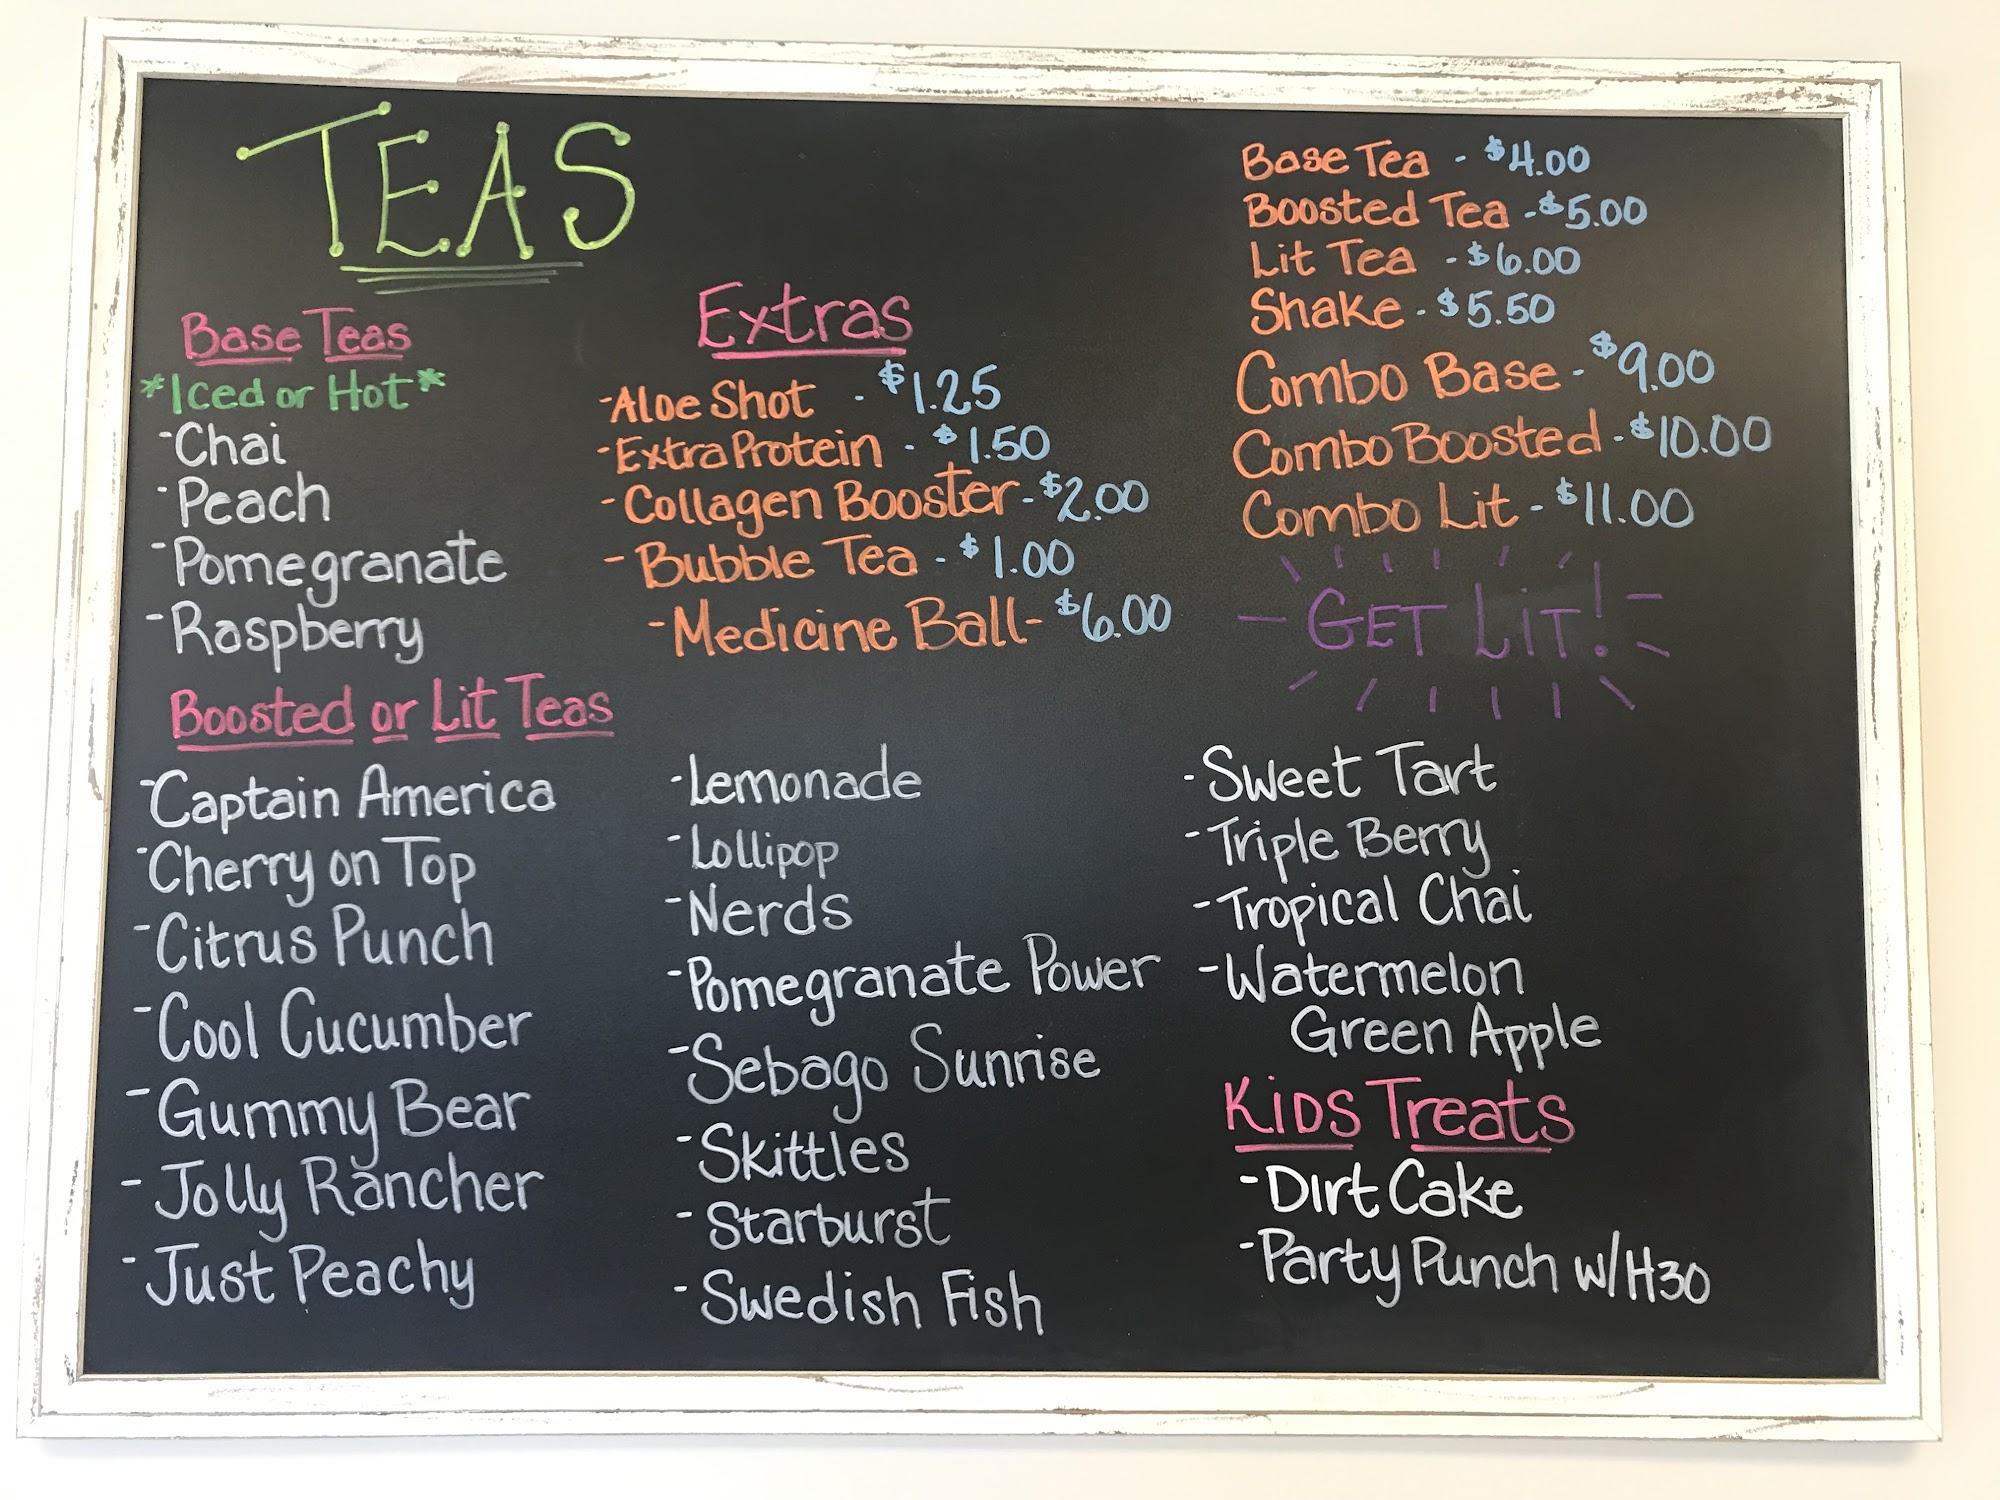 TEAS
Base Teas
*Iced or Hot*
-Chai
-Peach
-Pomegranate
-Raspberry
Extras
-Aloe Shot - $1.25
-Extra Protein - $1.50
-Collagen Booster - $2.00
-Bubble Tea - $1.00
-Medicine Ball - $6.00
Base Tea - $4.00
Boosted Tea - $5.00
Lit Tea - $6.00
Shake - $5.50
Combo Base - $9.00
Combo Boosted - $10.00
Combo Lit - $11.00
GET LiT!
Boosted or Lit Teas
-Captain America
-Cherry on Top
-Citrus Punch
-Cool Cucumber
-Gummy Bear
-Jolly Rancher
-Just Peachy
-Lemonade
-Lollipop
-Nerds
-Pomegranate Power
-Sebago Sunrise
-Skittles
-Starburst
-Swedish Fish
-Sweet Tart
-Triple Berry
-Tropical Chai
-Watermelon
Green Apple
KiDS Treats
-Dirt Cake
-Party Punch w/H30